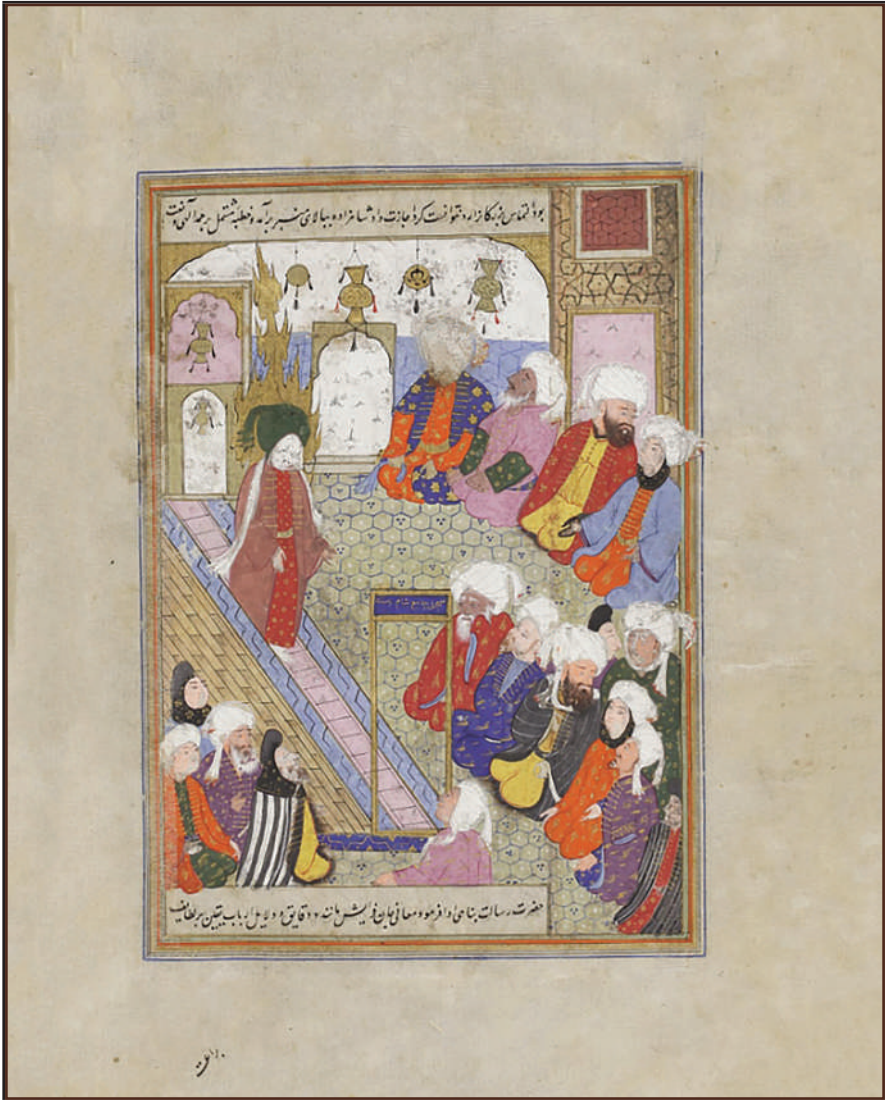 بود التماس بزرکانرا رد نتوانست کرد اجازت داد شاهزاده ببالای منبر برآمد و خطبه مشتمل بر حمد الهی و نعت
جامع شام
حضرت رسالت پناهی ادا فرمود و معانی جان فزایش مانند دقایق دلایل ارباب یقین بر لطایف